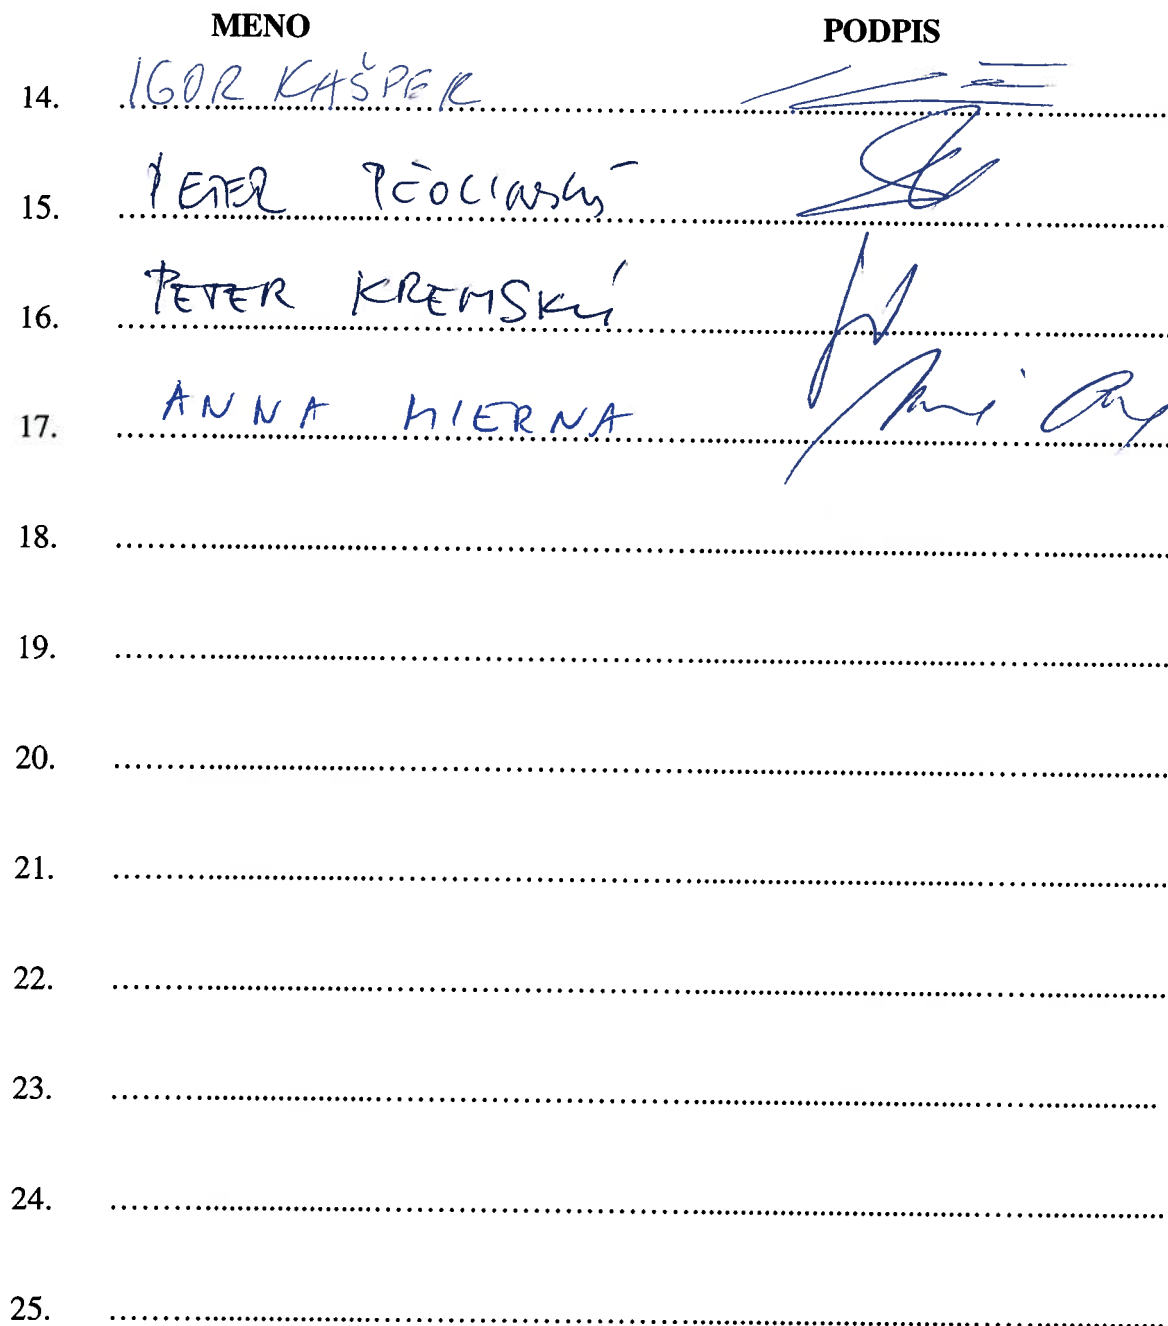 MENO PODPIS
14. IGOR KAŠPER
15. PETER PČOLINSKÝ
16. PETER KREMSKÝ
17. ANNA MIERNA
18.
19.
20.
21.
22.
23.
24.
25.